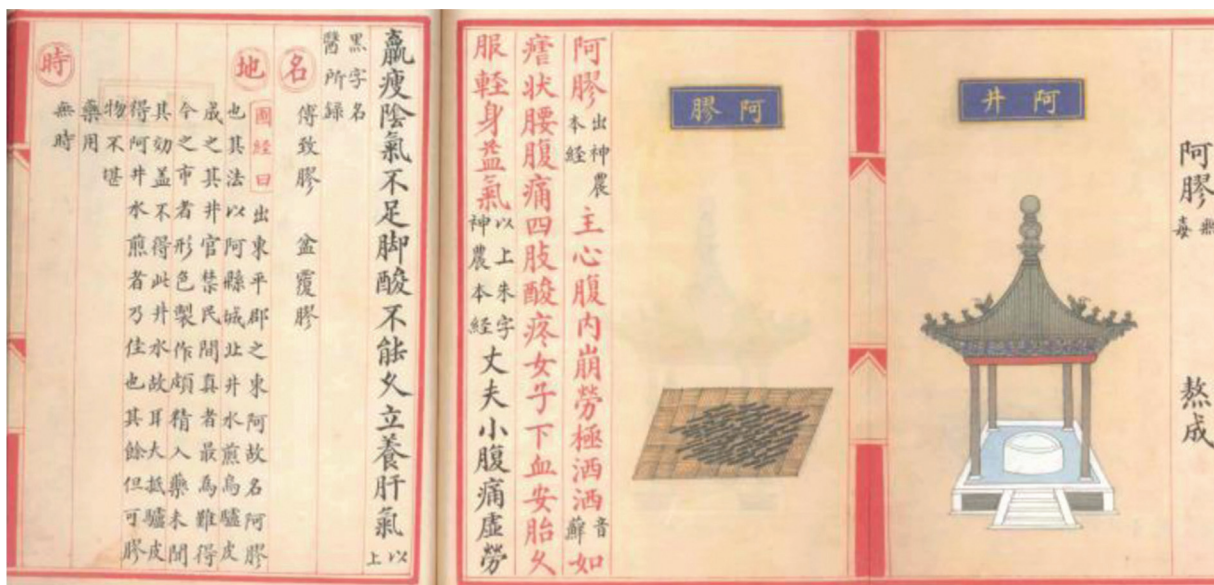 阿膠無毒 熬成
阿井
阿膠
阿膠出神農本経主心腹內崩勞極洒洒音蘚如
瘧狀腰腹痛四肢酸疼女子下血安胎久
服軽身益氣以上朱字神農本経丈夫小腹痛虛勞
羸瘦陰氣不足脚酸不能久立養肝氣以上
黒字名醫所録
名 傅致膠 盆覆膠
地 圖経曰出東平郡之東阿故名阿膠
也其法以阿縣城北井水煎烏驢皮
成之其井官禁民間真者最為難得
今之市者形色製作頗精入藥未聞
其効盖不得此井水故耳大抵驢皮
得阿井水煎者乃佳也其餘但可膠
物不堪
藥用
時 無時